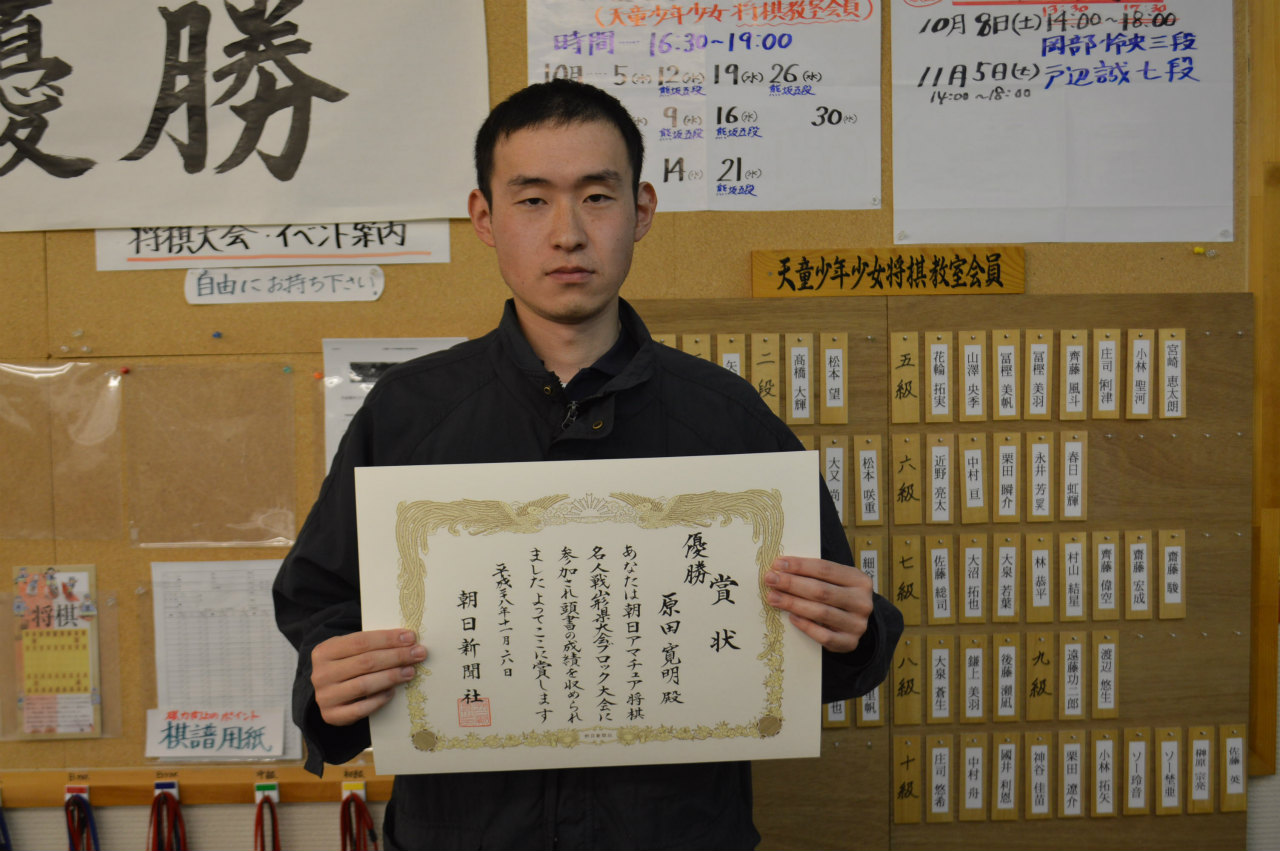 優勝
(天童少年少女将棋教室会員)
時間 … 16:30~19:00
10月 … 5(水) 12(水) 19(水) 26(水)
熊坂五段 熊坂五段
9(水) 16(水) 30(水)
熊坂五段 熊坂五段
14(水) 21(水)
熊坂五段
13:30 17:30
10月8日(土) 14:00~18:00
岡部怜央三段
11月5日(土) 戸辺誠七段
14:00~18:00
将棋大会・イベント案内
自由にお持ち下さい
天童少年少女将棋教室会員
二段
高橋 大輝
松本 望
五級
花輪 拓実
山澤 央季
冨樫 美帆
冨樫 美羽
齊藤 風斗
庄司 俐津
小林 聖河
宮崎 恵太朗
大又 尚
松本 咲重
六級
近野 亮太
中村 亘
栗田 瞬介
永井 芳昊
春日 虹輝
七級
佐藤 総司
大沼 拓也
大泉 若葉
林 恭平
村山 結星
齊藤 偉空
齋藤 宏成
齋藤 駿
八級
大泉 蒼生
鎌上 美羽
後藤 瀬凪
九級
遠藤 功二郎
渡辺 悠生
十級
庄司 悠希
中村 舟
國井 利恩
神谷 佳苗
栗田 遼介
小林 拓矢
ソー 玲音
ソー 埜亜
榊原 宗亮
佐藤 英
賞状
優勝
原田寛明殿
あなたは朝日アマチュア将棋
名人戦山形県大会ブロック大会に
参加され頭書の成績を収められ
ました よってここに賞します
平成二十八年十一月六日
朝日新聞社
将棋
棋力向上のポイント
棋譜用紙